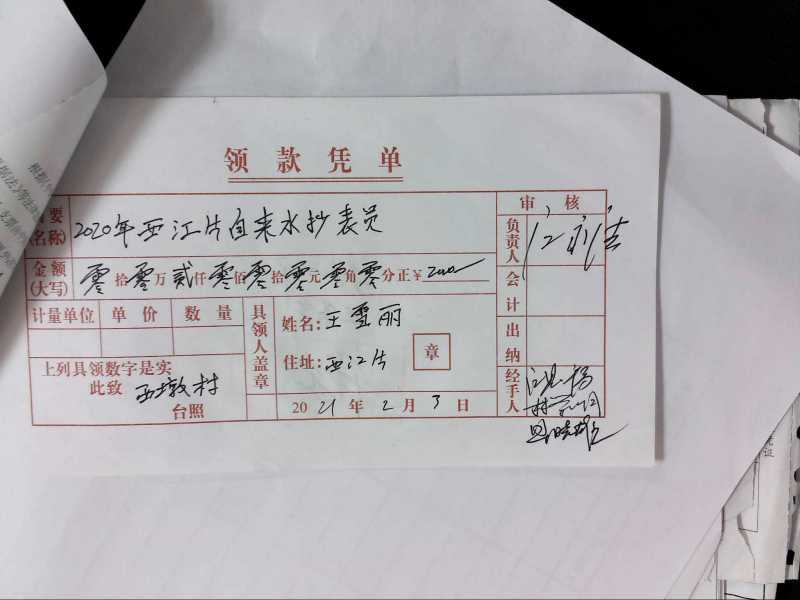 领款凭单
要
名称)
2020年西江片自来水抄表员
审核
负责人
金额
(大写)
零拾零万贰仟零佰零拾零元零角零分正￥2000
会计
计量单位 单价 数量
具领人盖章
姓名:王雪丽
住址:西江片
章
出纳
上列具领数字是实
此致 西墩村
台照
2021年2月3日
经手人